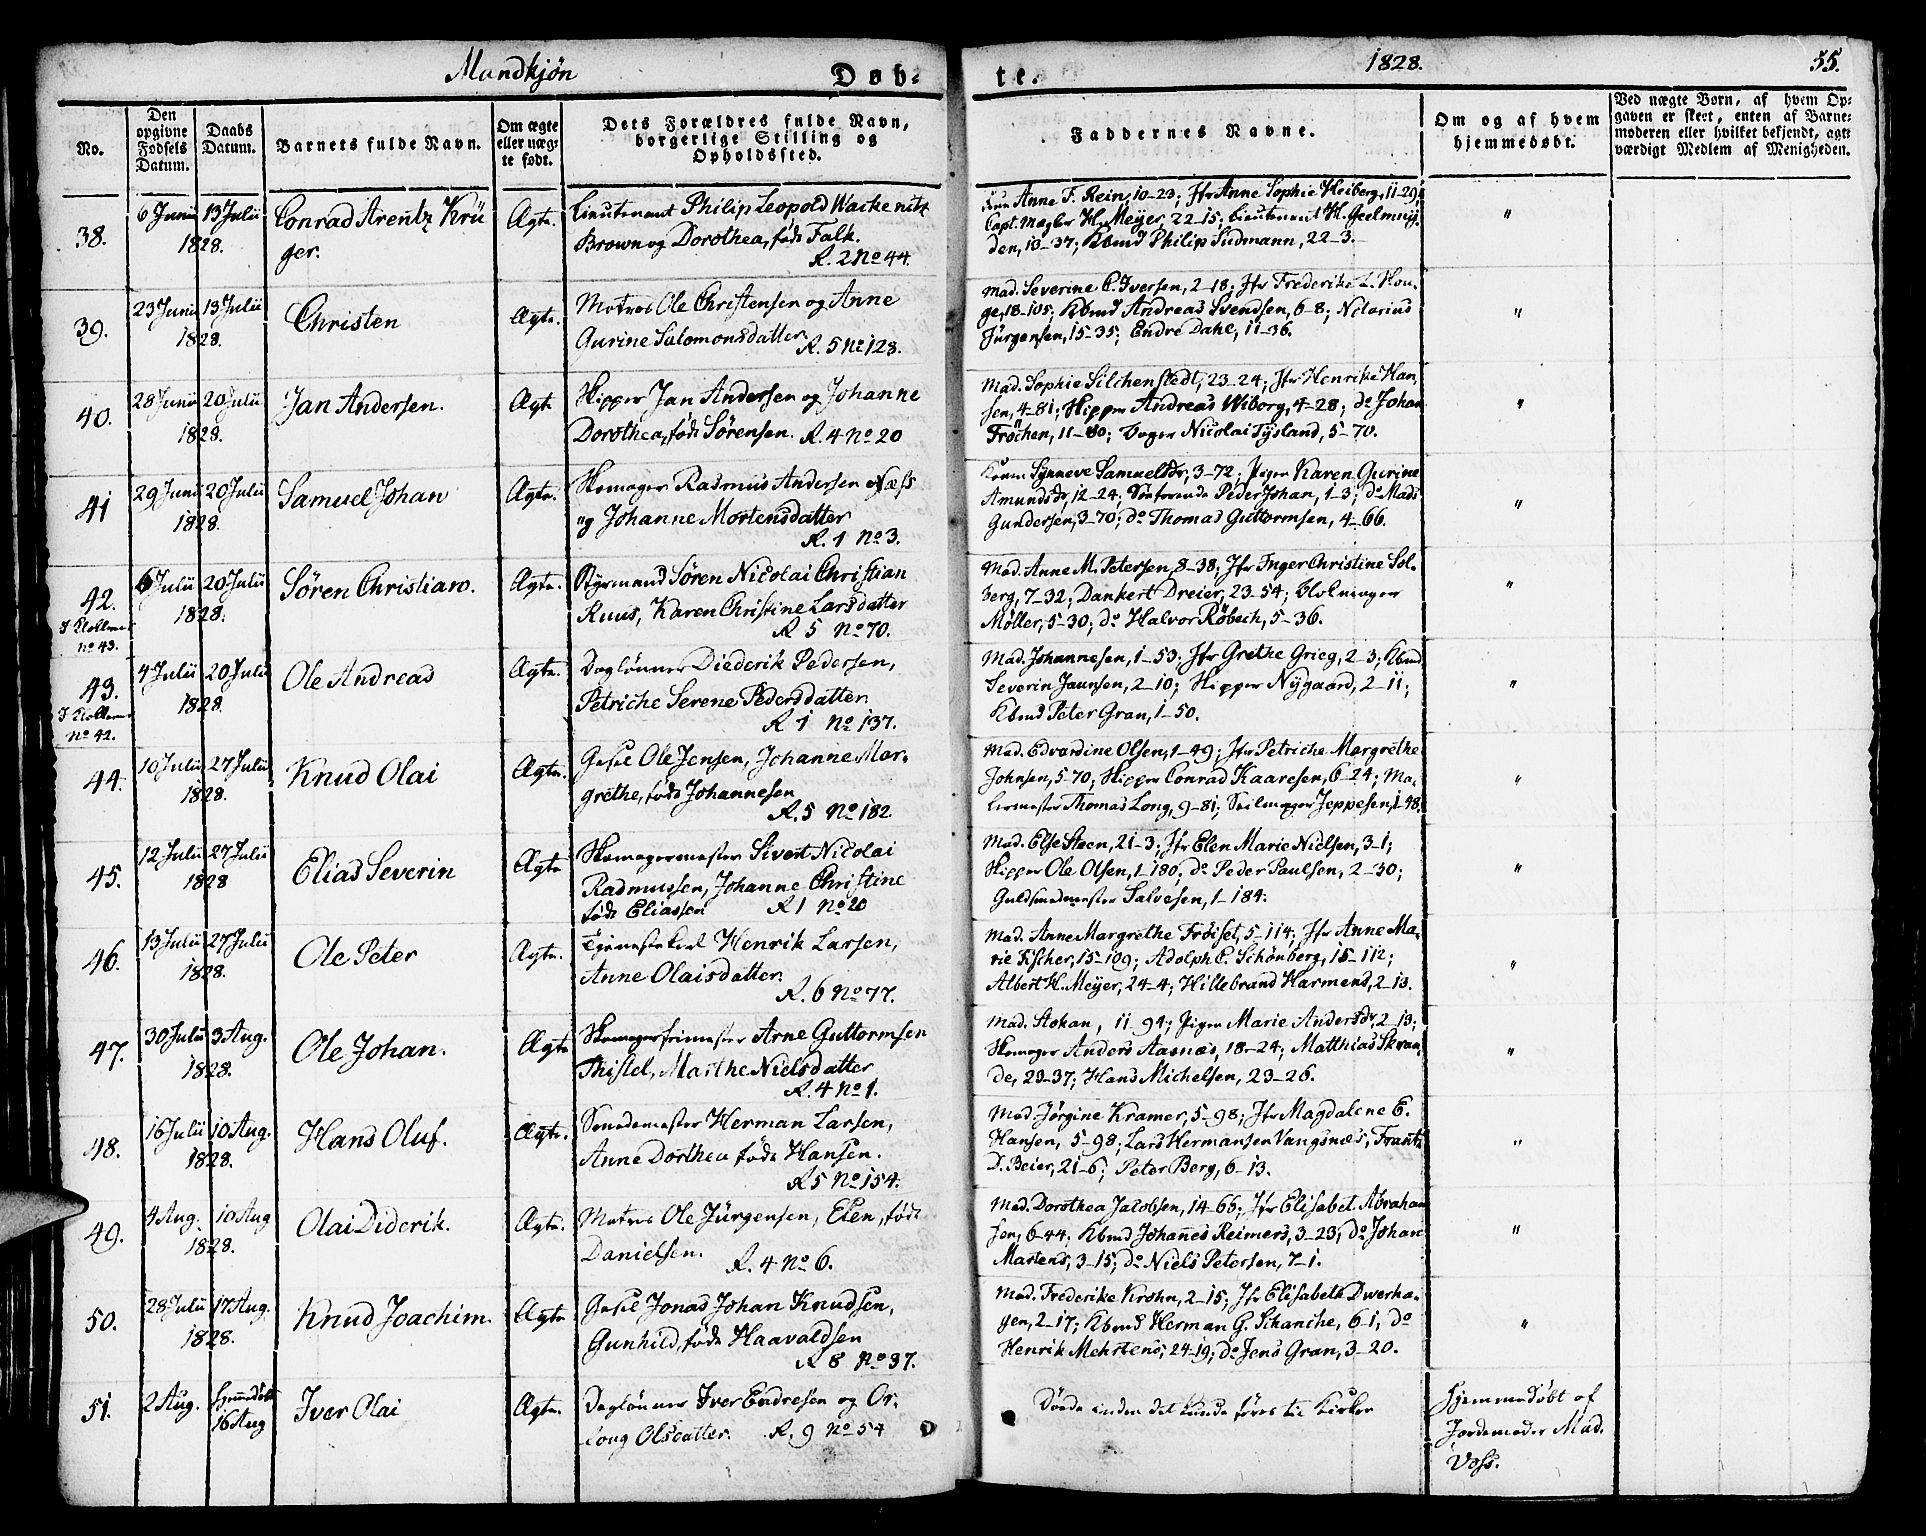 Mandkjøn
Døb-
te.
1828.
55.
No.
Den opgivne Fødsels Datum.
Daabs Datum.
Barnets fulde Navn.
Om ægte eller uægte født.
Dets Forældres fulde Navn, borgerlige Stilling og Opholdssted.
Faddernes Navne.
Om og af hvem hjemmedøbt.
Ved uægte Børn, af hvem Opgaven er skeet, enten af Barnemoderen eller hvilket bekjendt, agtværdigt Medlem af Menigheden.
38.
6 Junii 13 Julii
1828.
Conrad Arentz Krü
ger.
Ægte.
Lieutenant Philip Leopold Wackenitz
Brown og Dorothea, föde Falk.
R. 2 No 44.
Anne F. Rein, 10-23; Jfr Anne Sophie Heiberg, 11-29;
Capt. Mægler H. Meyer, 22-15; Lieutenant H. Geelmuy-
den, 13-37; Kbmd Philip Sudmann, 22-3.
"
39.
23 Junii 13 Julii
1828.
Christen
Ægte.
Matros Ole Christensen og Anne
Gurine Salomonsdatter
R. 5 No 128.
Mad. Severine C. Iversen, 2-18; Jfr Frederikke L. Hou-
ge, 18-105; Kbmd Andreas Svendsen, 6-8; Notarius
Jürgensen, 15-35; Endre Dahl, 11-36.
"
40.
28 Junii 20 Julii
1828.
Jan Andersen.
Ægte
Skipper Jan Andersen og Johanne
Dorothea, föde Sörensen. R. 4 No 20
Mad. Sophie Silchenstedt, 23-24; Jfr Henrikke Han-
sen, 4-81; Skipper Andreas Wiborg, 4-28; do Johan
Fröchen, 11-80; Bager Nicolai Tysland, 5-70.
"
41
29 Junii 20 Julii
1828.
Samuel Johan
Ægte.
Skomager Rasmus Andersen Næss
og Johanne Mortensdatter
R. 1 No 3.
Konen Synneve Samuelsdr, 3-72; Pigen Karen Gurine
Amundsdr, 12-24; Peder Johan, 1-3; do Mads
Gundersen, 3-70; do Thomas Guttormsen, 4-66.
"
42.
No 43.
6 Julii 20 Julii
1828.
Sören Christian.
Ægte.
Styrmand Sören Nicolai Christian
Ruus, Karen Christine Larsdatter
R 5 No 70.
Mad. Anne M. Petersen, 8-38; Jfr Inger Christine Sol-
berg, 7-32; Dankert Dreier, 23-54; Blokmager
Møller, 5-30; do Halvor Röbech, 5-36.
"
43.
No 42.
4 Julii 20 Julii
1828.
Ole Andreas
Ægte.
Daglönner Diederik Pedersen,
Petriche Serene Pedersdatter
R 1 No 137.
Mad. Johannesen, 1-53; Jfr Grethe Grieg, 2-3; Kbmd
Severin Jaunsen, 2-10; Skipper Nygaard, 2-11;
Kbmd Peter Gran, 1-50.
"
44.
10 Julii 27 Julii
1828.
Knud Olai
Ægte.
Gesel Ole Jensen, Johanne Mar-
grethe, föde Johannesen
R. 5 No 182.
Mad. Edvardine Olsen, 1-49; Jfr Petriche Margrethe
Johnsen, 5-70; Skipper Conrad Kaaresen, 6-24; Ma-
lermester Thomas Long, 9-81; Seilmager Jeppesen, 1-48.
"
45.
12 Julii 27 Julii
1828
Elias Severin
Ægte
Skomagermester Sivert Nicolai
Rasmussen, Johanne Christine
föde Eliassen R 1 No 20
Mad. Else Steen, 21-3; Jfr Elen Marie Nielsen, 3-1;
Skipper Ole Olsen, 1-180; do Peder Paulsen, 2-30;
Guldsmedmester Salvesen, 1-184.
"
46.
13 Julii 27 Julii
1828.
Ole Peter
Ægte.
Tjenestekarl Henrik Larsen,
Anne Olaisdatter.
R. 6 No 77.
Mad. Anne Margrethe Fröiset, 5-114; Jfr Anne Ma-
rie Fischer, 15-109; Adolph C. Schönberg, 15-112;
Albert H. Meyer, 24-4; Hillebrand Harmens, 2-13.
"
47.
30 Julii 3 Aug.
1828.
Ole Johan.
Ægte
Skomagerfrimester Arne Guttormsen
Thistel, Marthe Nielsdatter
R. 4 No 1.
Mad. Stokan, 11-94; Pigen Marie Andersdr, 2-13;
Skomager Anders Aasnæs, 18-24; Matthias Skran-
de, 23-37; Hans Michelsen, 23-26.
"
48.
16 Julii 10 Aug.
1828.
Hans Oluf.
Ægte.
Herman Larsen,
Anne Dorthea föde Hansen.
R 5 No 154.
Mad. Jörgine Kramer, 5-98; Jfr Magdalene E.
Hansen, 5-98; Lars Hermansen Vangsnæs, Frantz
D. Beier, 21-6; Peter Berg, 6-13.
"
49.
4 Aug. 10 Aug
1828.
Olai Diderik.
Ægte.
Matros Ole Jürgensen, Elen, föde
Danielsen. R. 4 No 6.
Mad. Dorothea Jacobsen, 14-66; Jfr Elisabet Abraham
sen, 6-44; Kbmd Johannes Reimers, 3-23; do Johan
Martens, 3-15; do Niels Petersen, 7-1.
"
50.
28 Julii 17 Aug.
1828.
Knud Joachim.
Ægte
Gesel Jonas Johan Knudsen,
Gunhild, föde Haavaldsen
R 8 No 37.
Mad. Frederikke Krohn, 2-15; Jfr Elisabeth Dwerha-
gen, 2-17; Kbmd Herman G. Schanche, 6-1; do
Henrik Mehrtens, 24-19; do Jens Gran, 3-20.
"
51.
2 Aug. Hjemmedöbt
16 Aug
Iver Olai
Ægte.
Daglönner Iver Endresen og Or-
loug Olsdatter. R. 9 No 54
Döde inden det kunde föres til Kirken
Hjemmedöbt af
Jordemoder Mad.
Voss.